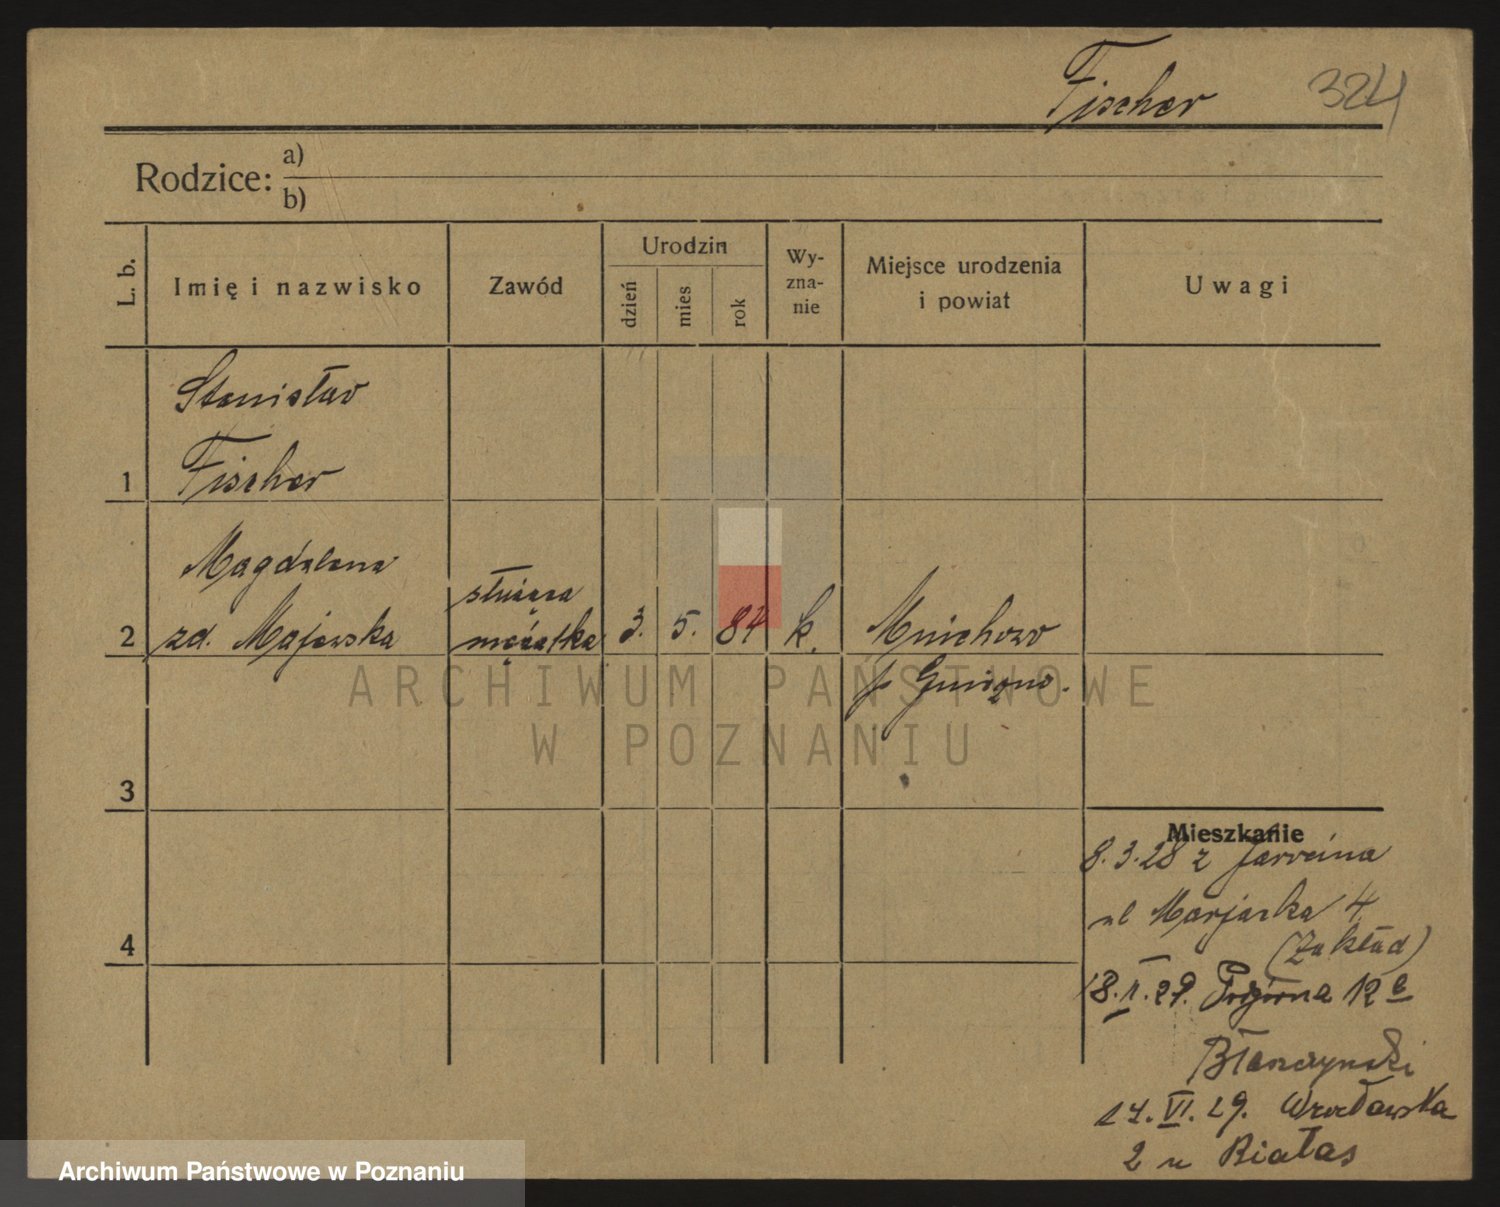 Fischer 324
Rodzice:
a)
b)
L. b.
Imię i nazwisko
Zawód
Urodzin
dzień
mies
rok
Wy-
zna-
nie
Miejsce urodzenia
i powiat
Uwagi
Stanisław
1 Fischer
Magdalena
służąca
2 zd. Majewska mężatka 3. 5. 84 k. Mnichowo
p Gniezno.
3
Mieszkanie
8.3.28 z Jarocina
ul Marjacka 4
4
(Zakład)
18.II.29. 12
14.VI.29. Wrocławska
2 u Białas
ARCHIWUM PAŃSTWOWE
W POZNANIU
Archiwum Państwowe w Poznaniu